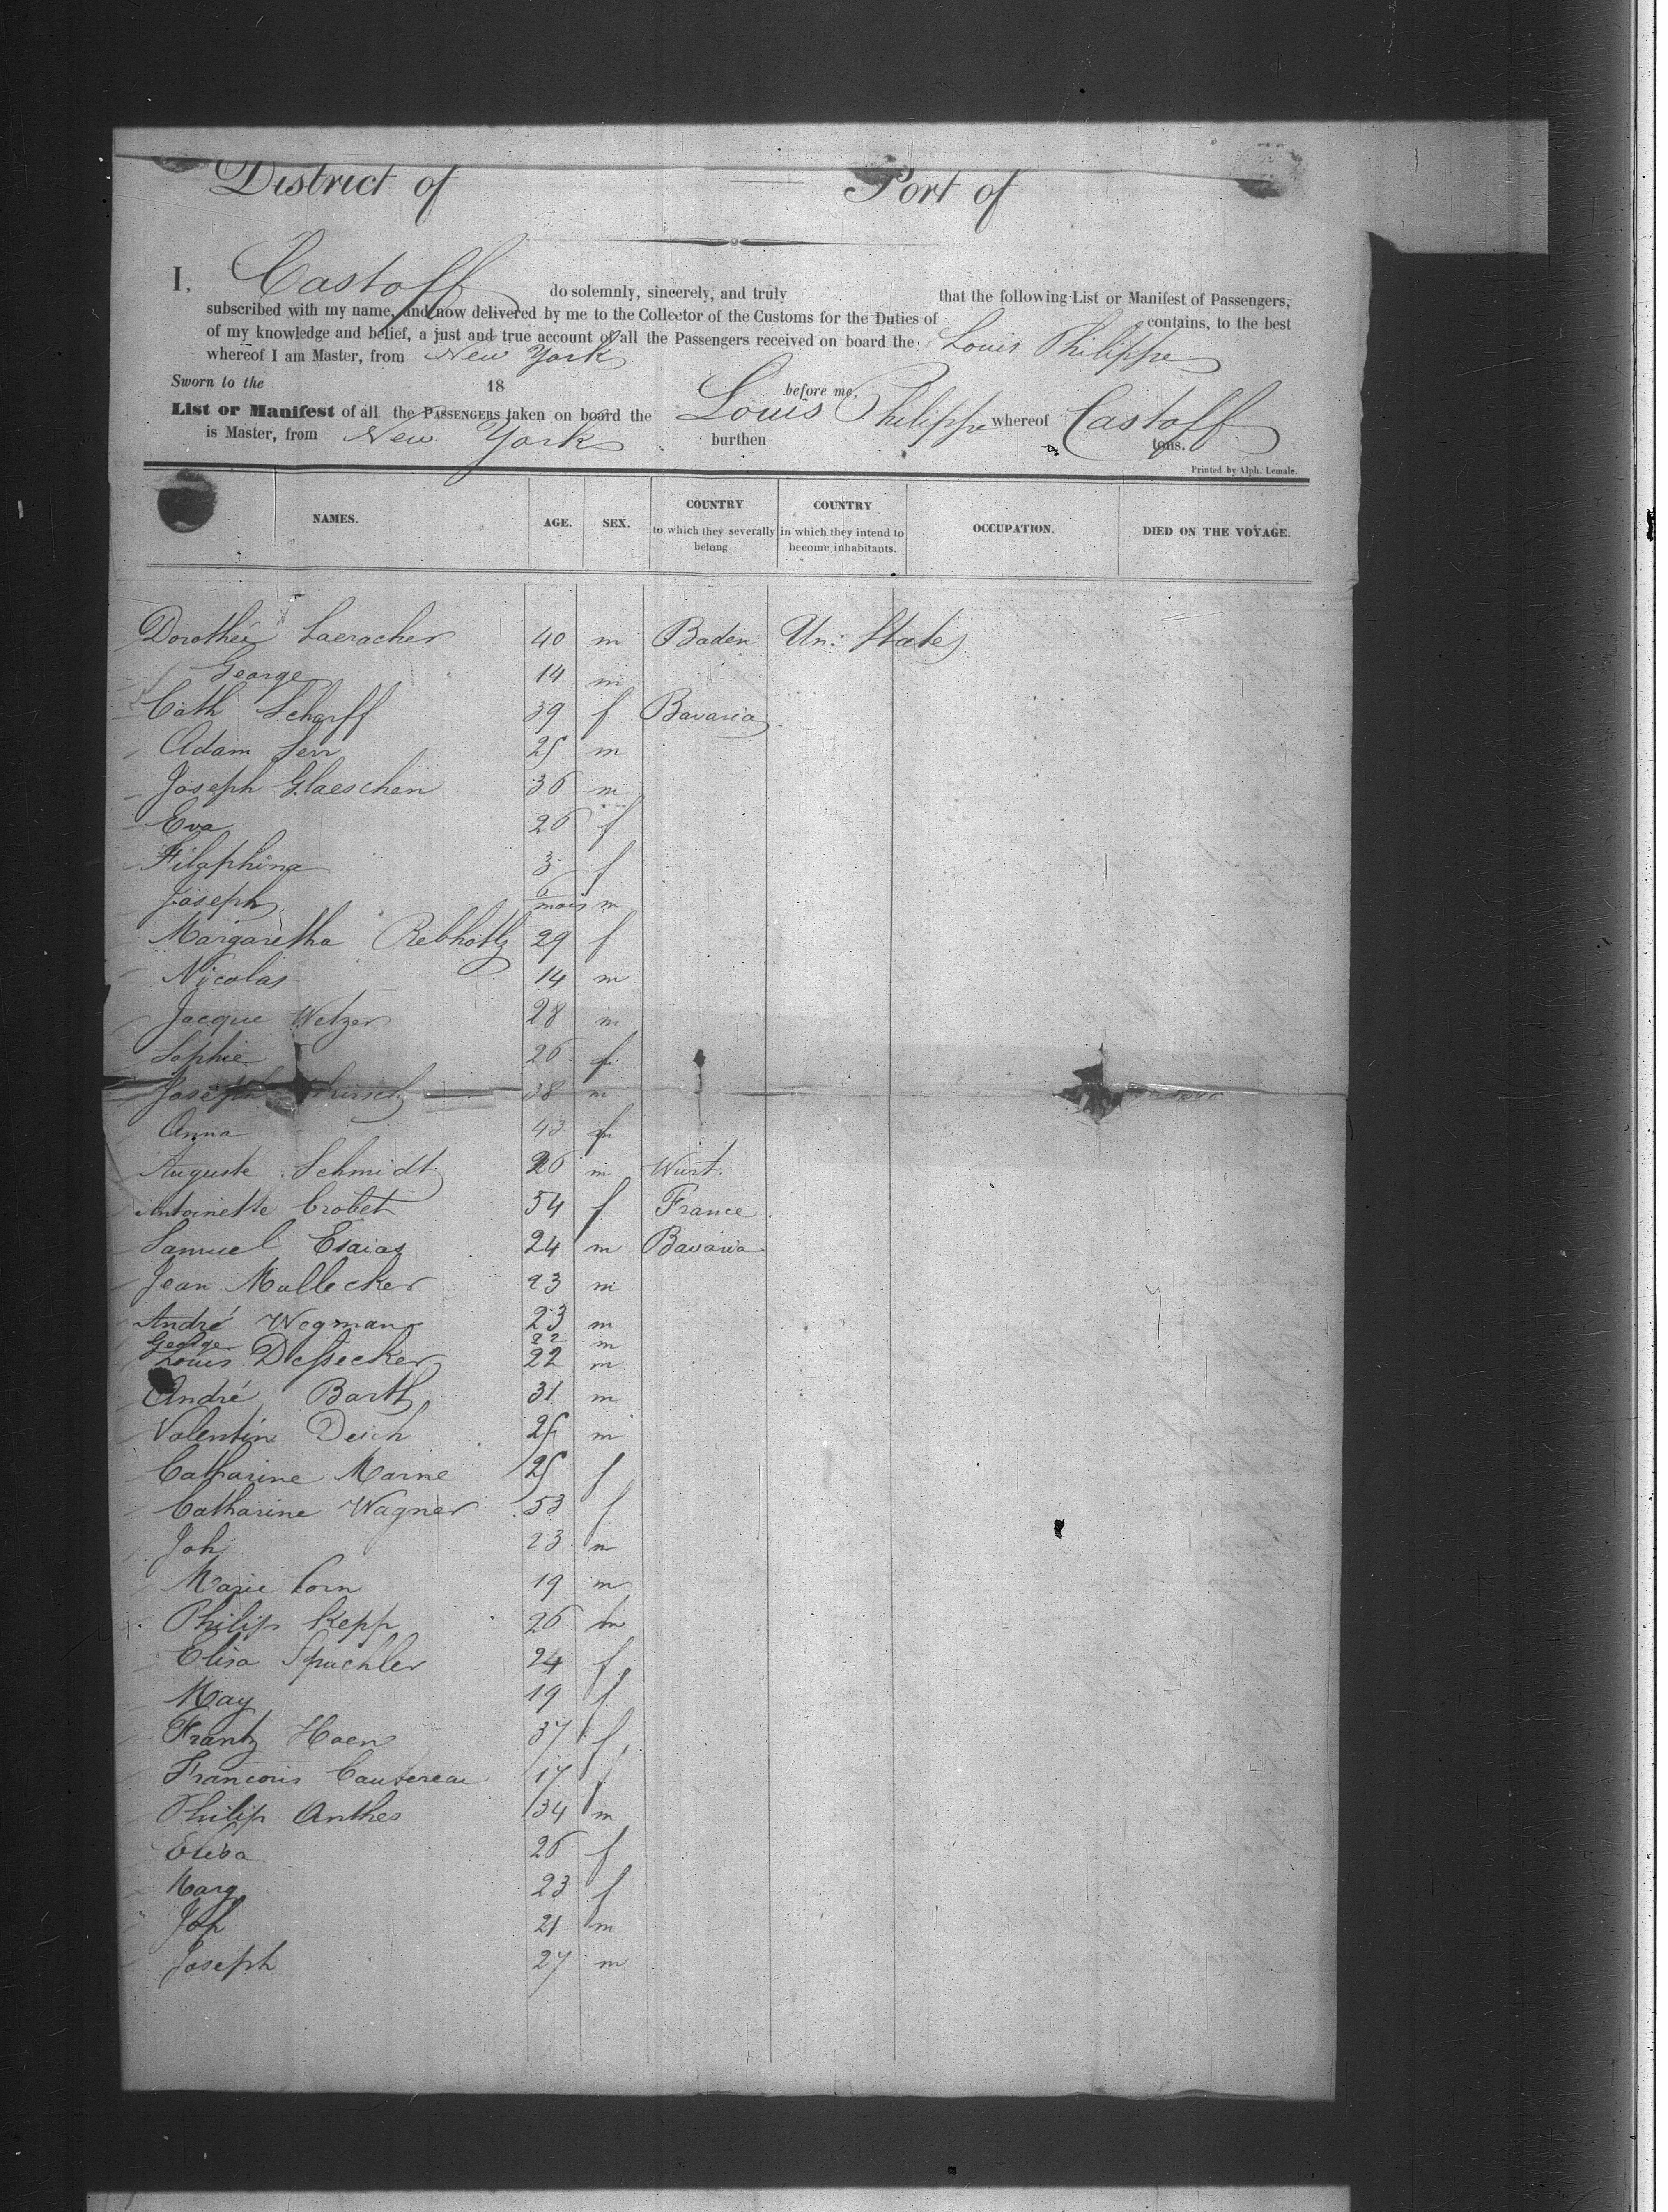 District of Port of
I, Castoff do solemnly, sincerely, and truly that the following List or Manifest of Passengers,
subscribed with my name, and now delivered by me to the Collector of the Customs for the Duties of contains, to the best
of my knowledge and belief, a just and true account of all the Passengers received on board the Louis Philippe
whereof I am Master, from New York
Sworn to the 18 before me,
List or Manifest of all the PASSENGERS taken on board the Louis Philippe whereof Castoff
is Master, from New York burthen tons.
Printed by Alph. Lemale.
NAMES. AGE. SEX. COUNTRY to which they severally belong COUNTRY in which they intend to become inhabitants. OCCUPATION. DIED ON THE VOYAGE.
Dorothée Laeracher 40 m Baden Un: States
George 14 m
Cath Scharff 39 f Bavaria
Adam Serr 25 m
Joseph Glaeschen 36 m
Eva 26 f
Filaphina 3 f
Joseph 6 mois m
Margaretha Rebholtz 29 f
Nicolas 14 m
Jacque Wetzer 28 m
Sophie 26 f
Joseph 38 m
Anna 43 f
Auguste Schmidt 26 m Wurt.
Antoinette Crobet 54 f France
Samuel Esaias 24 m Bavaria
Jean Mullecker 23 m
André Wegman 23 m
George 22 m
Louis Dessecker 22 m
André Barth 31 m
Valentin Deich 25 m
Catharine Marne 25 f
Catharine Wagner 53 f
Joh 23 m
Marie Corn 19 m
Philip Kepp 26 m
Elisa Spuchler 24 f
May 19 f
Frantz Haen 37 f
Francois Cautereau 17 f
Philip Anthes 34 m
Elisa 26 f
Marg 23 f
Joh 21 m
Joseph 27 m